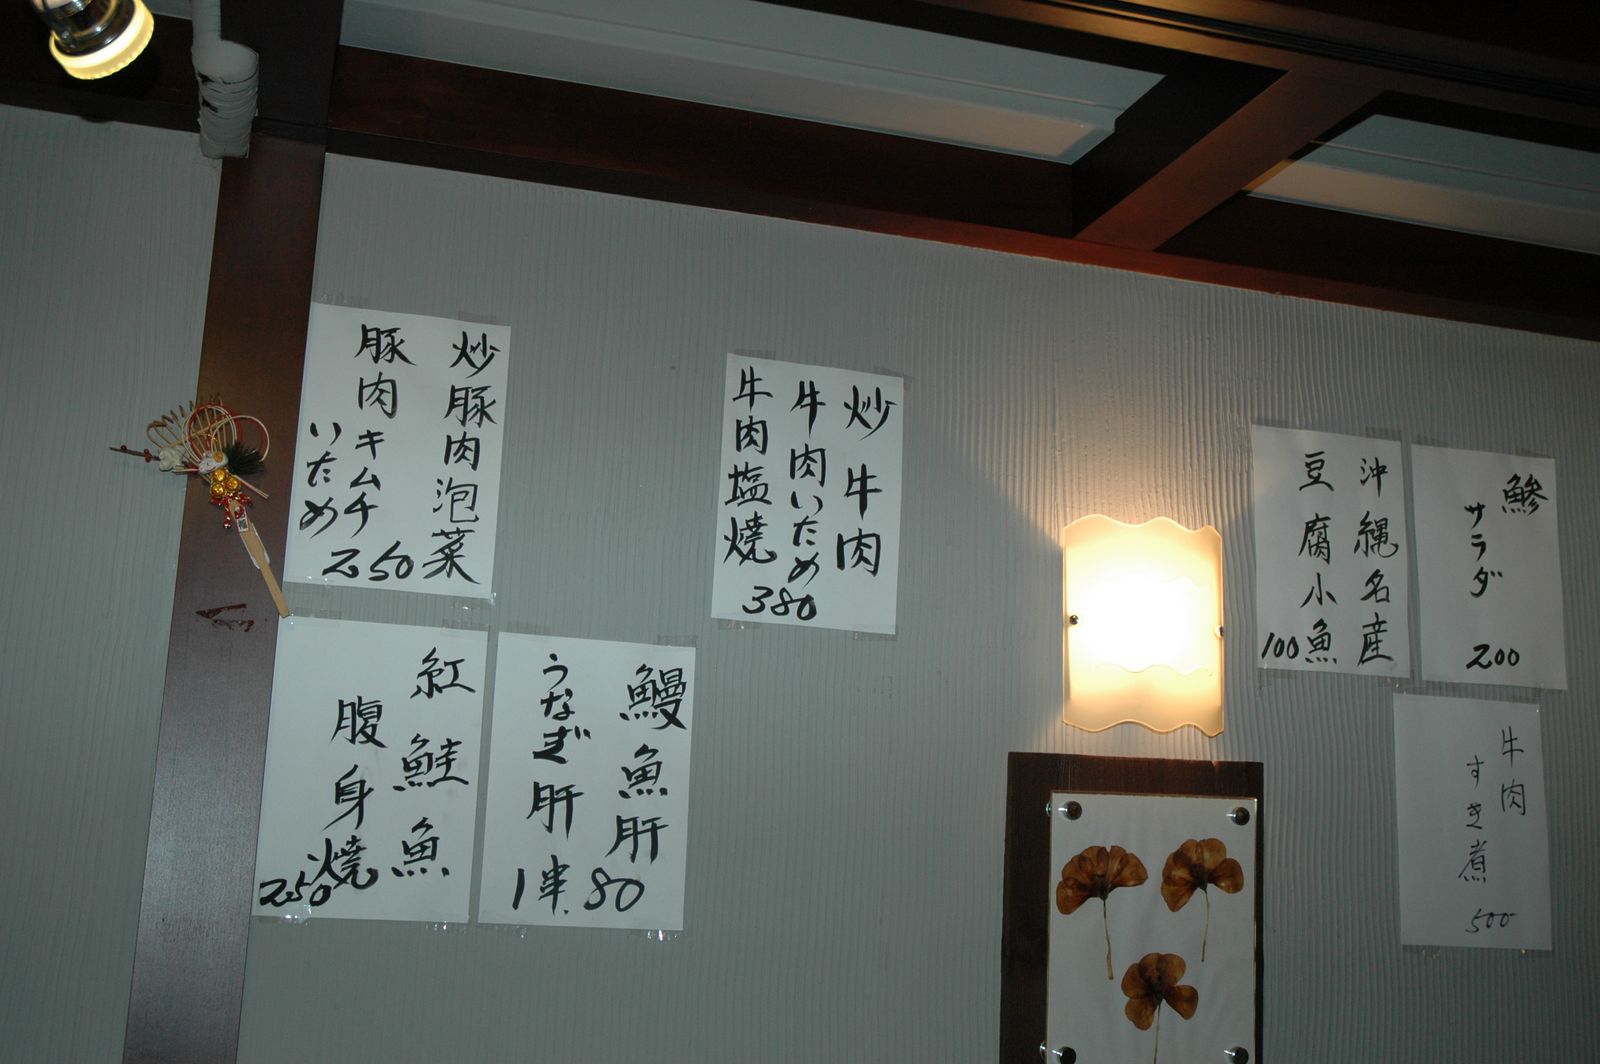 炒豚肉泡菜
豚肉キムチ
いため
250
炒牛肉
牛肉いため
牛肉塩焼
380
沖縄名産
豆腐小魚
100
鯵
サラダ
200
紅鮭魚
腹身焼
250
鰻魚肝
うなぎ肝
1串.80
牛肉
すき煮
500